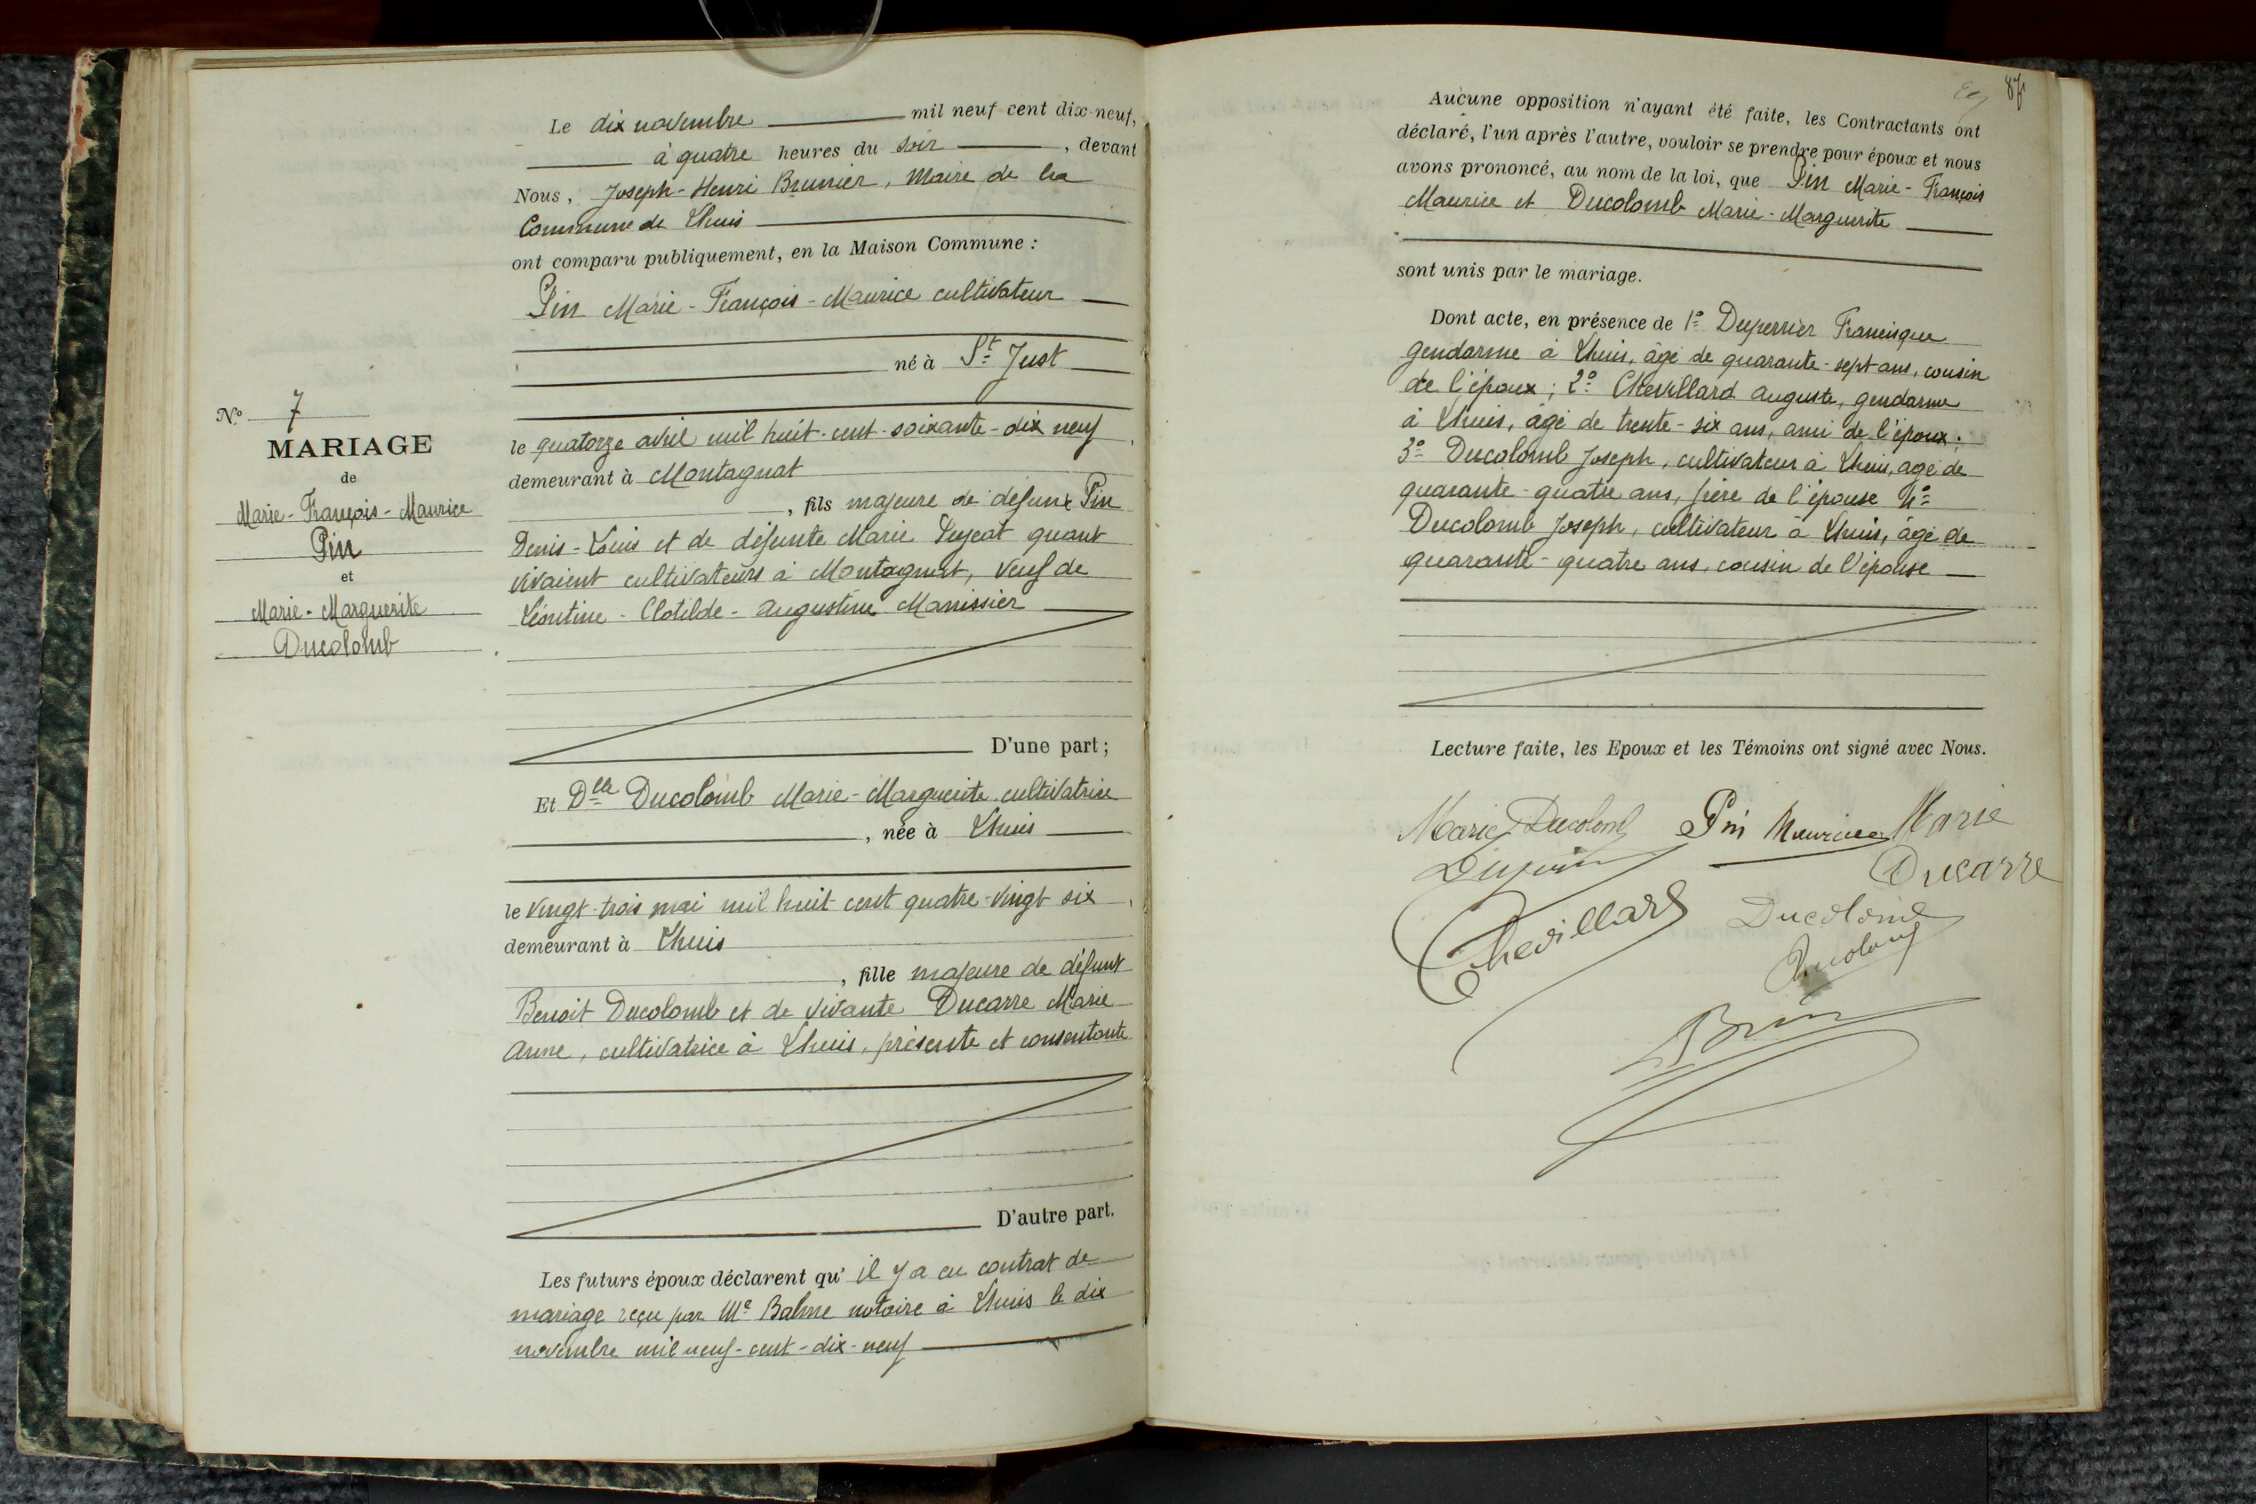 Le dix novembre mil neuf cent dix-neuf,
à quatre heures du soir, devant
Nous, Joseph-Henri Brunier, Maire de la
Commune de Lhuis
ont comparu publiquement, en la Maison Commune :
Pin Marie-François-Maurice cultivateur
né à St Just
le quatorze avril mil huit-cent-soixante-dix neuf,
demeurant à Montagnat
, fils majeure de défunt Pin
Denis-Louis et de défunte Marie quant
vivaient cultivateurs à Montagnat, veuf de
Léontine-Clotilde-Augustine Manissier
D'une part ;
N° 7
MARIAGE
de
Marie-François-Maurice
Pin
et
Marie-Marguerite
Ducolomb
Et Dlle Ducolomb Marie-Marguerite cultivatrice
, née à Lhuis
le vingt-trois mai mil huit cent quatre-vingt six,
demeurant à Lhuis
, fille majeure de défunt
Benoit Ducolomb et de vivante Ducarre Marie
Anne, cultivatrice à Lhuis, présente et consentante
D'autre part.
Les futurs époux déclarent qu' il y a eu contrat de
mariage reçu par Me Balme notaire à Lhuis le dix
novembre mil neuf-cent-dix-neuf
87
Aucune opposition n'ayant été faite, les Contractants ont
déclaré, l'un après l'autre, vouloir se prendre pour époux et nous
avons prononcé, au nom de la loi, que Pin Marie-François
Maurice et Ducolomb Marie-Marguerite
sont unis par le mariage.
Dont acte, en présence de 1° Duperrier Francisque
gendarme à Lhuis, âgé de quarante-sept ans, cousin
de l'époux ; 2° Chevillard Auguste, gendarme
à Lhuis, âgé de trente-six ans, ami de l'époux ;
3° Ducolomb Joseph, cultivateur à Lhuis, âgé de
quarante-quatre ans, frère de l'épouse 4°
Ducolomb Joseph, cultivateur à Lhuis, âgé de
quarante-quatre ans, cousin de l'épouse
Lecture faite, les Epoux et les Témoins ont signé avec Nous.
Marie Ducolomb Pin Maurice Marie
Ducarre
Chevillard Ducolomb
Ducolomb